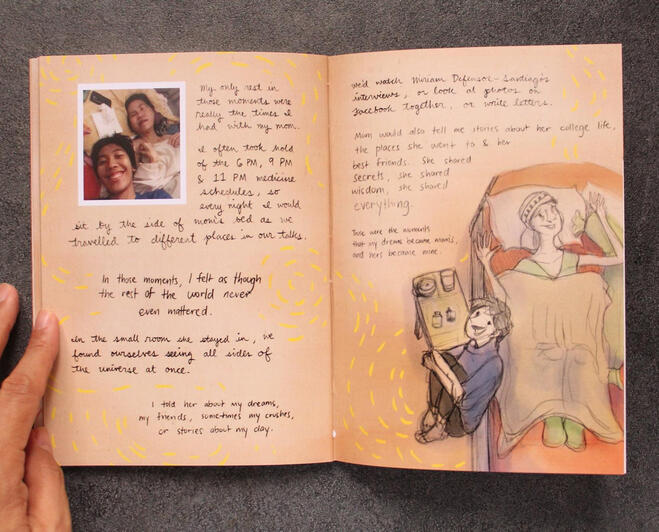 My only rest in
those moments were
really the times I
had with my mom.
I often took hold
of the 6 PM, 9 PM
& 11 PM medicine
schedules, so
every night I would
sit by the side of mom's bed as we
travelled to different places in our talks.
In those moments, I felt as though
the rest of the world never
even mattered.
In the small room she stayed in, we
found ourselves seeing all sides of
the universe at once.
I told her about my dreams,
my friends, sometimes my crushes,
or stories about my day.
We'd watch Miriam Defensor-Santiago's
interviews, or look at photos on
Facebook together, or write letters.
Mom would also tell me stories about her college life,
the places she went to & her
best friends. She shared
secrets, she shared
wisdom, she shared
everything.
Those were the moments
that my dreams became mom's,
and hers became mine.